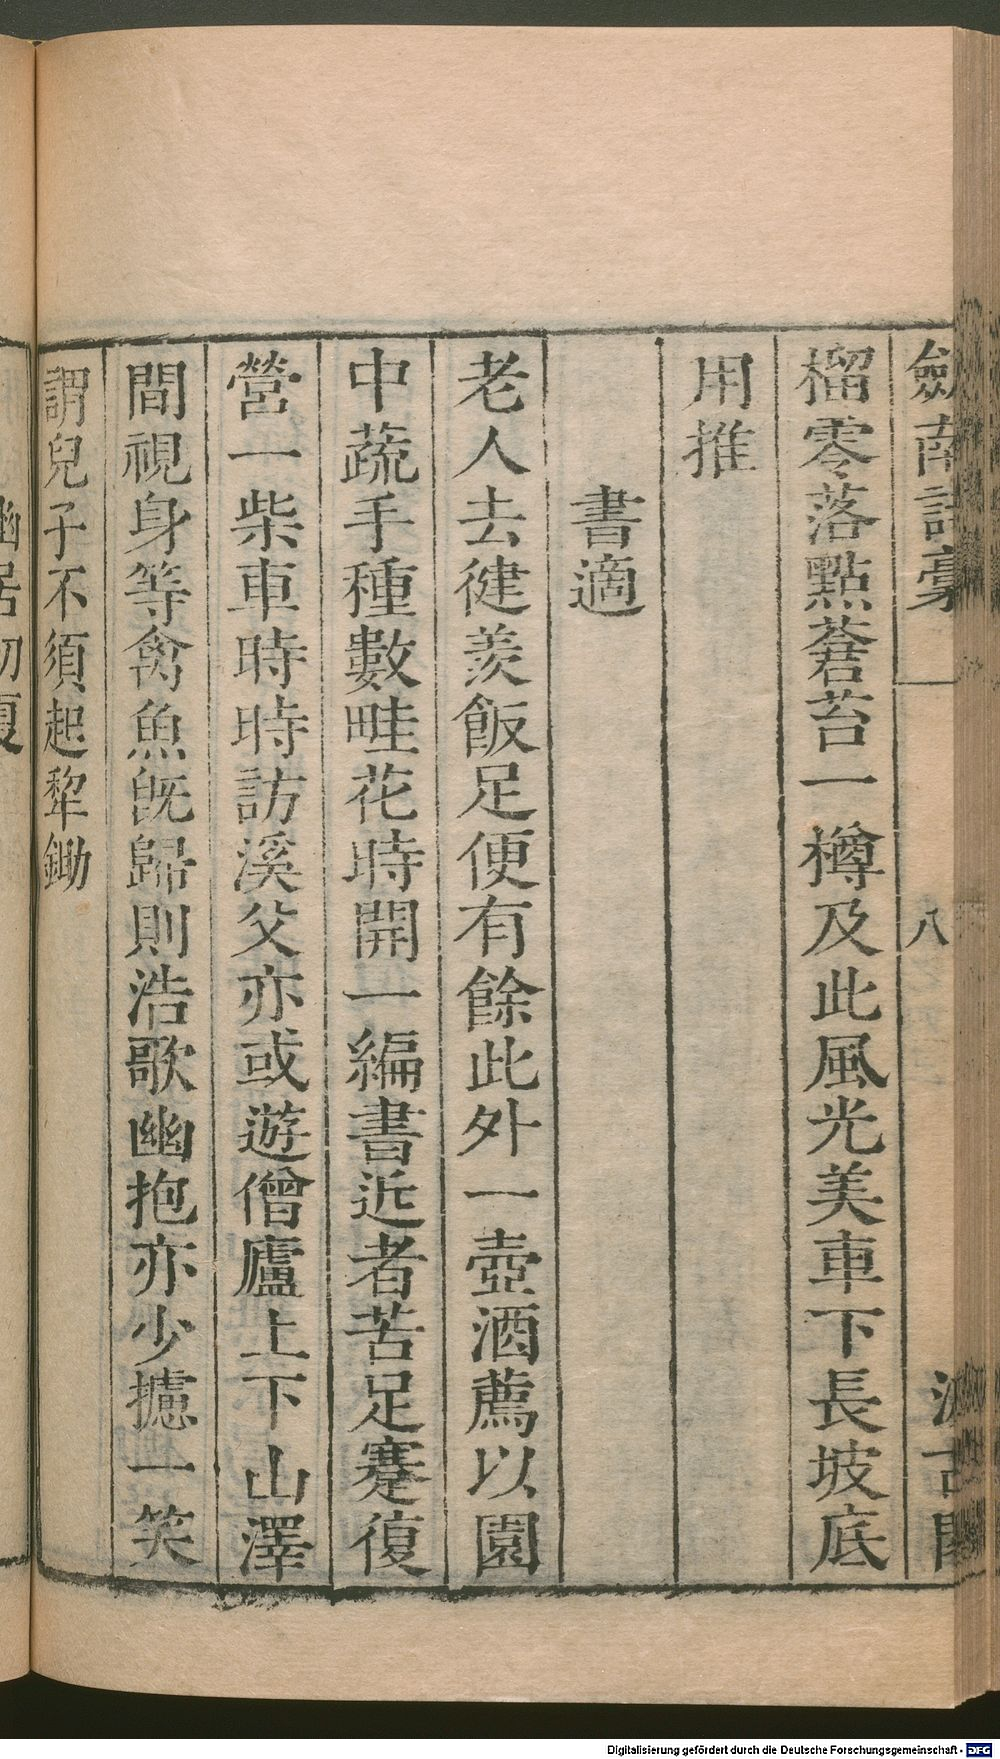 劒南詩稾
八
汲古閣
榴零落點蒼苔一樽及此風光美車下長坡底
用推
書適
老人去健羨飯足便有餘此外一壺酒薦以園
中蔬手種數畦花時開一編書近者苦足蹇復
營一柴車時時訪溪父亦或遊僧廬上下山澤
間視身等禽魚旣歸則浩歌幽抱亦少攄一笑
謂兒子不須起犂鋤
幽居初夏
Digitalisierung gefördert durch die Deutsche Forschungsgemeinschaft - DFG